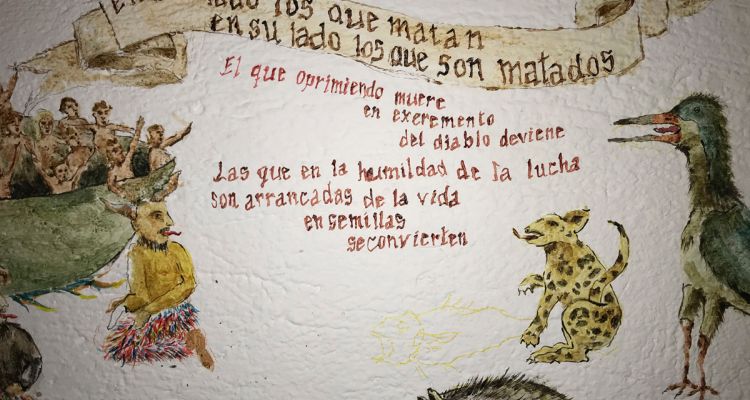 los que matan
en su lado los que son matados
El que oprimiendo muere
en exeremento
del diablo deviene
Las que en la humildad de la lucha
son arrancadas de la vida
en semillas
se convierten